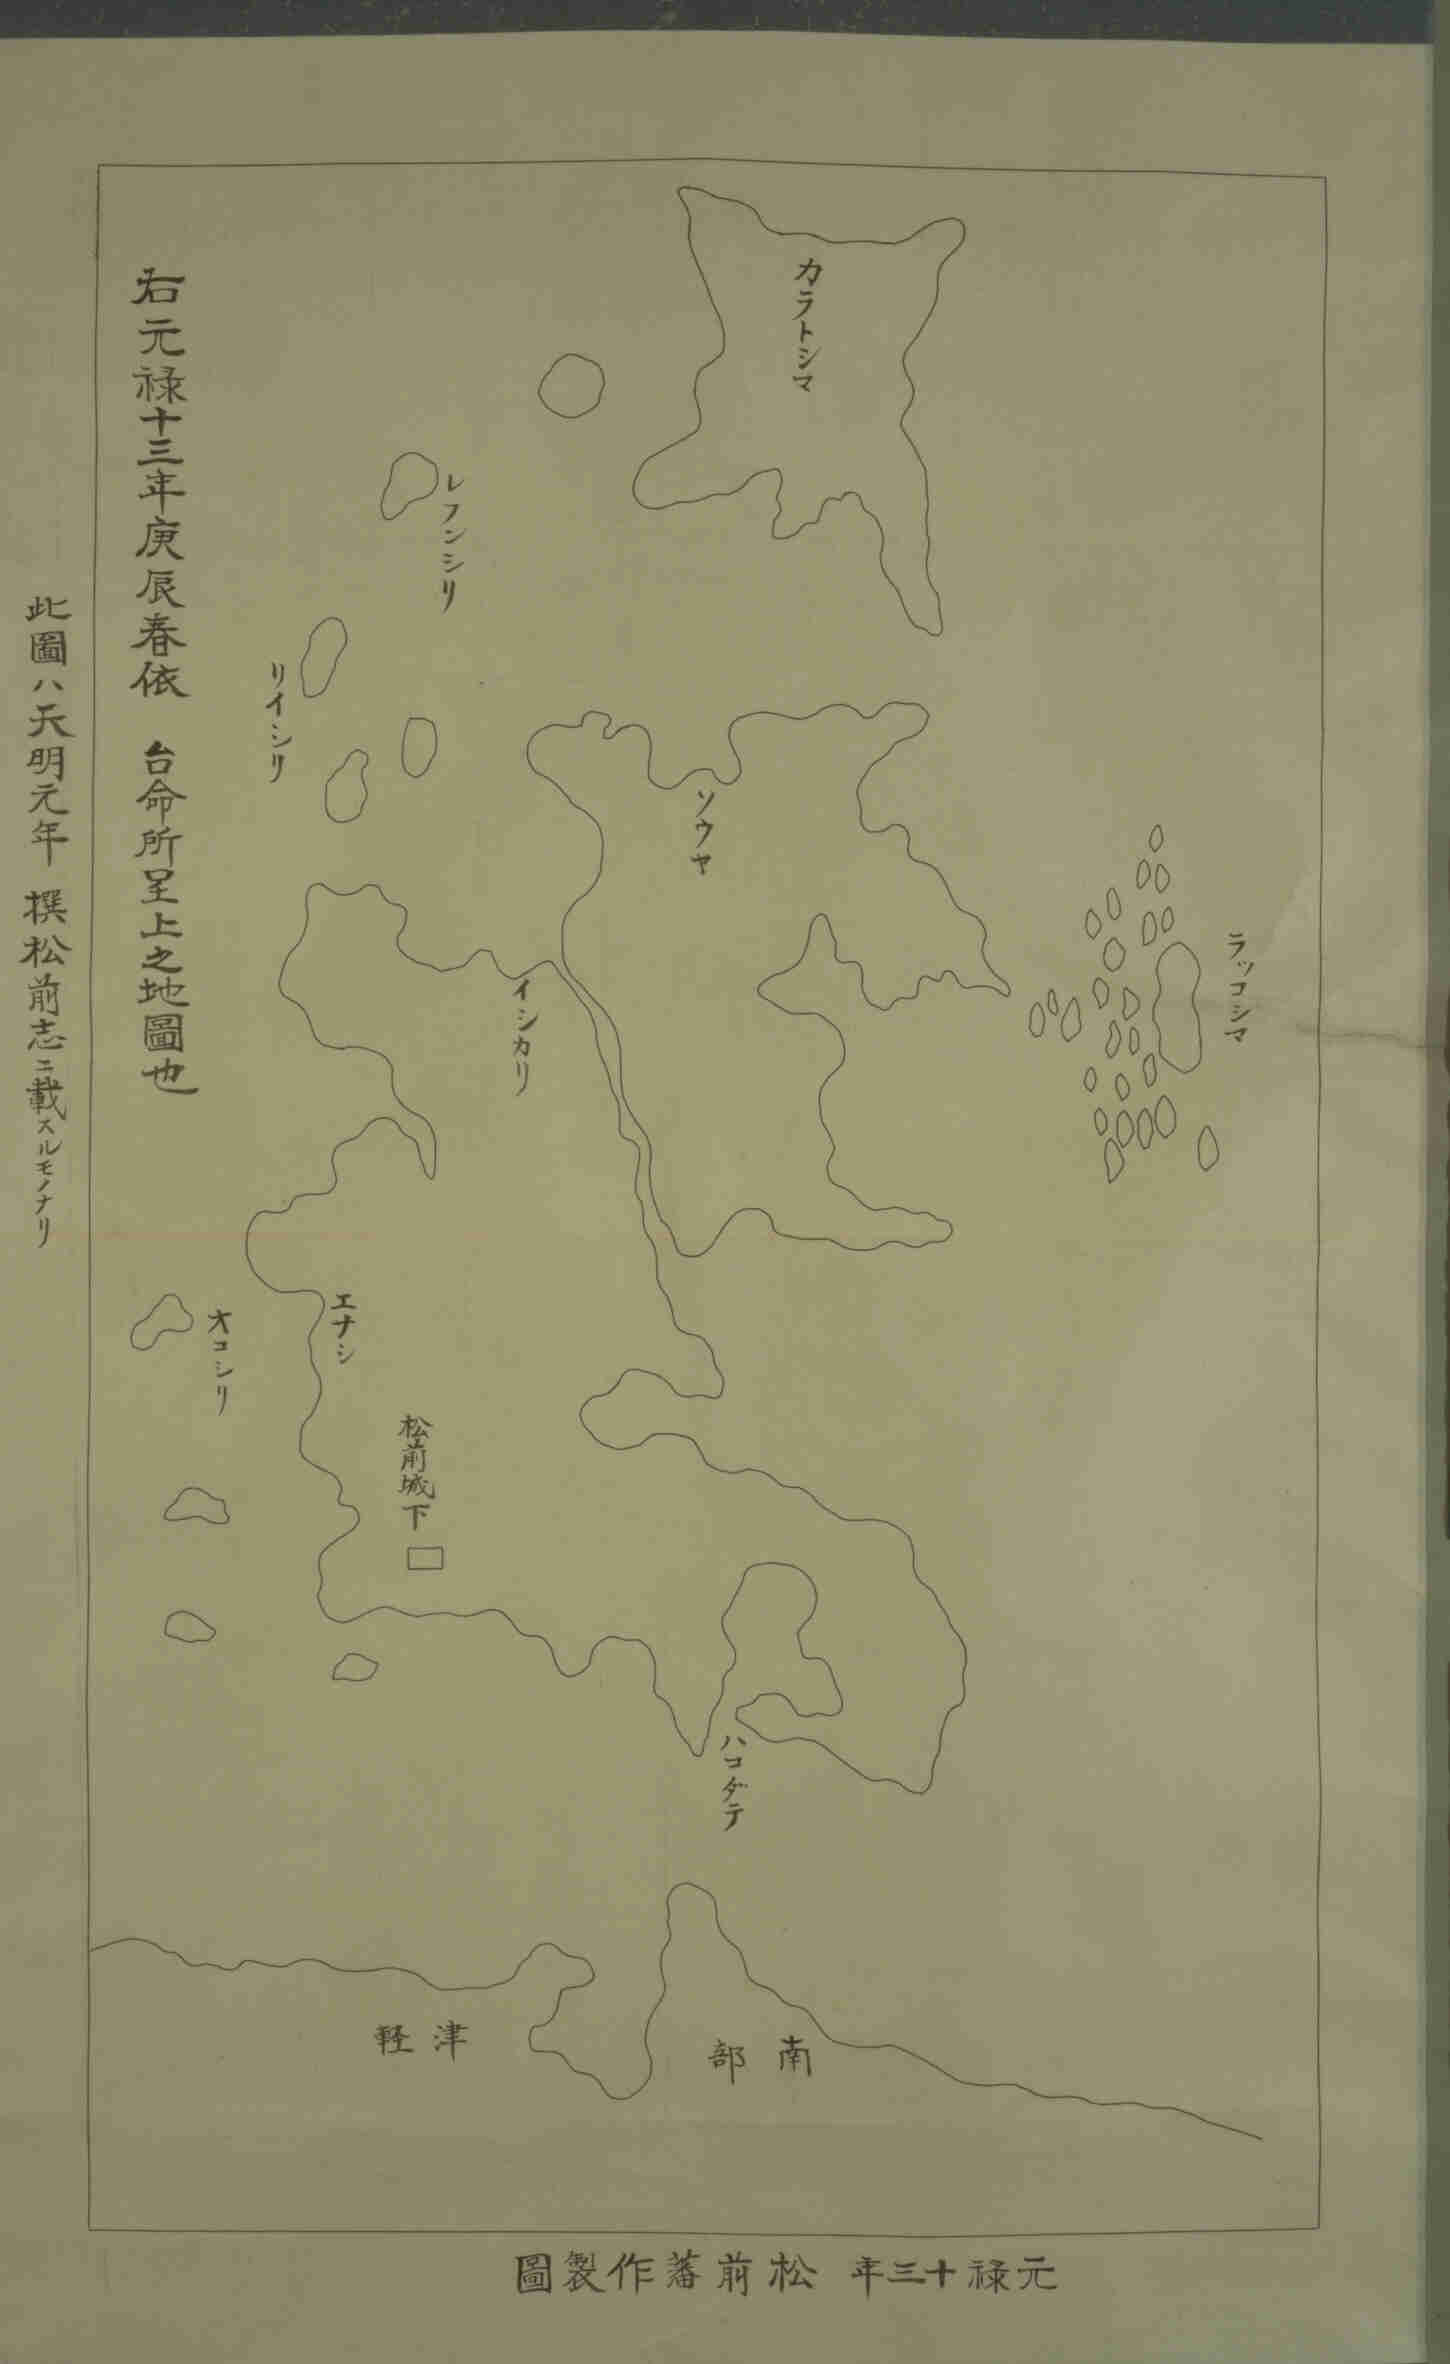 カラトシマ
レフンシリ
リイシリ
ソウヤ
ラッコシマ
イシカリ
エナシ
オコシリ
松前城下
ハコダテ
南部
津軽
右元禄十三年庚辰春依　台命所呈上之地圖也
此圖ハ天明元年　撰松前志ニ載スルモノナリ
元禄十三年　松前蕃作製圖